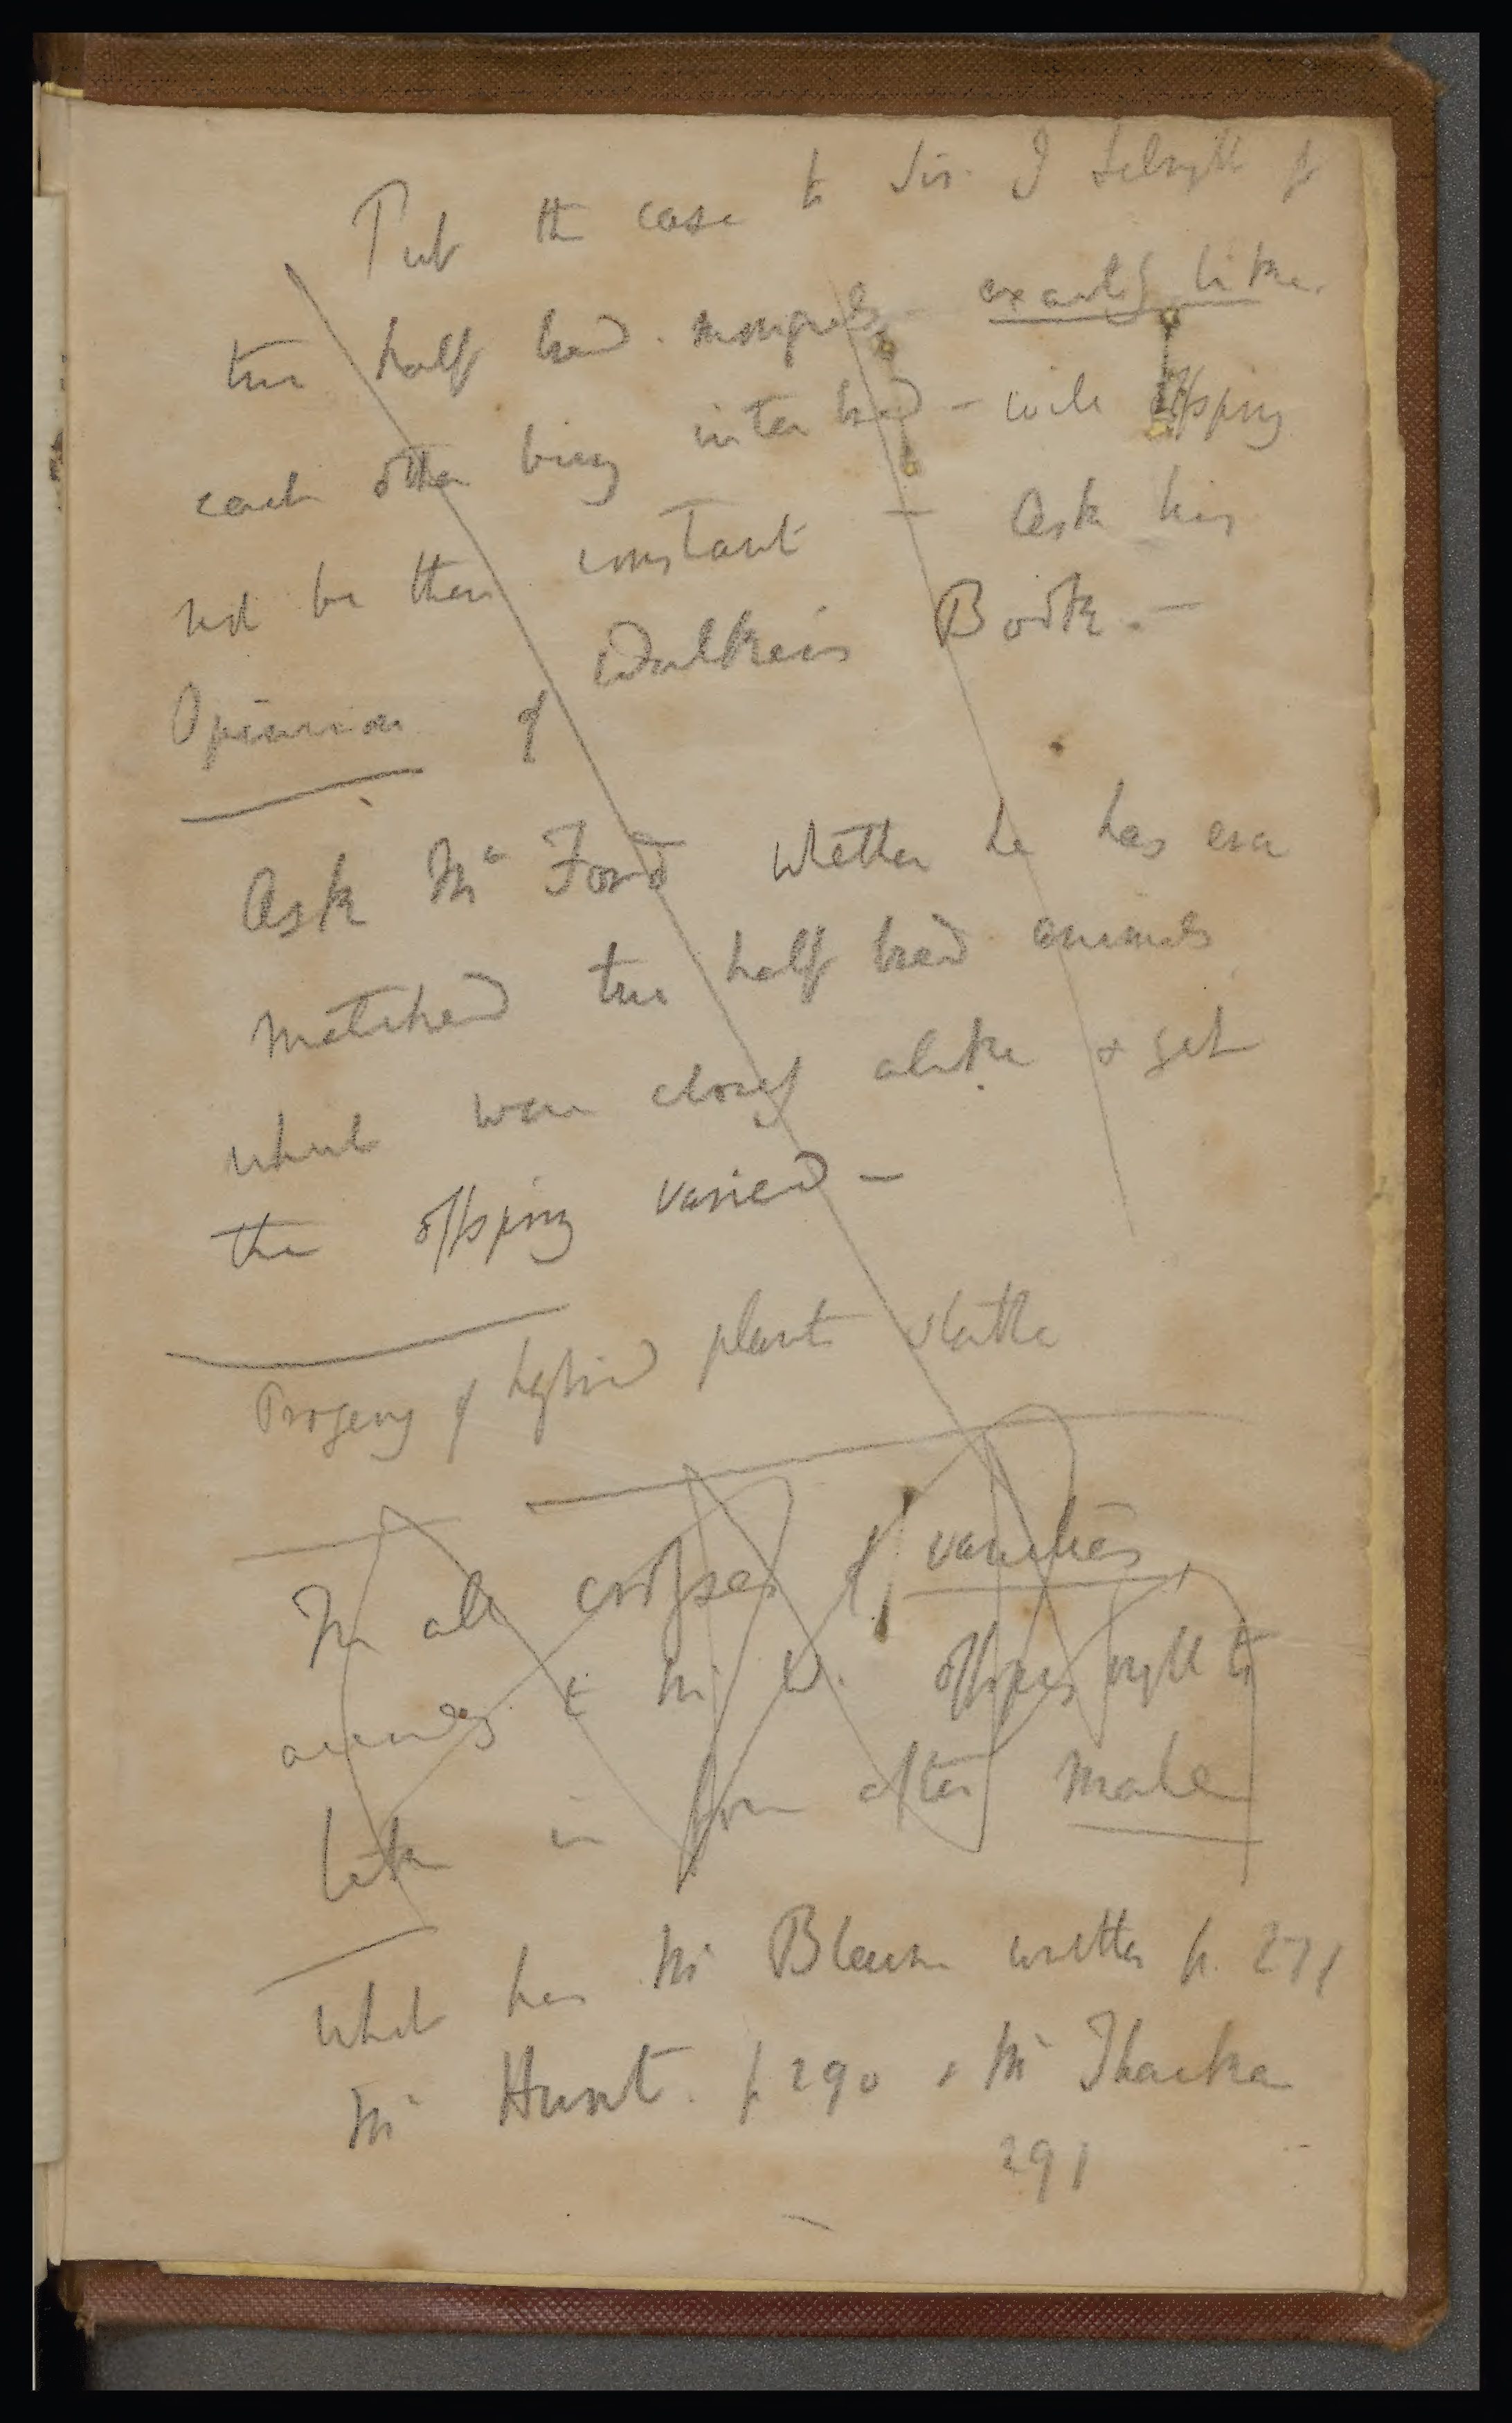 Put the case to Sir. J Sebright of
two half bred. mongrels – exactly like
each other being inter bred – will offspring
not be then constant — Ask his
Opinion of Walkers Book. —
Ask Mr Ford whether he has ever
matched two half bred animals
which were closely alike & yet
the offspring varied —
Progeny of hybrid plants
In all crosses of varieties
animals offspring ought to
take in form after Male
What has Mr written p. 271
Mr Hunt. p 290 & Mr Thacker
291